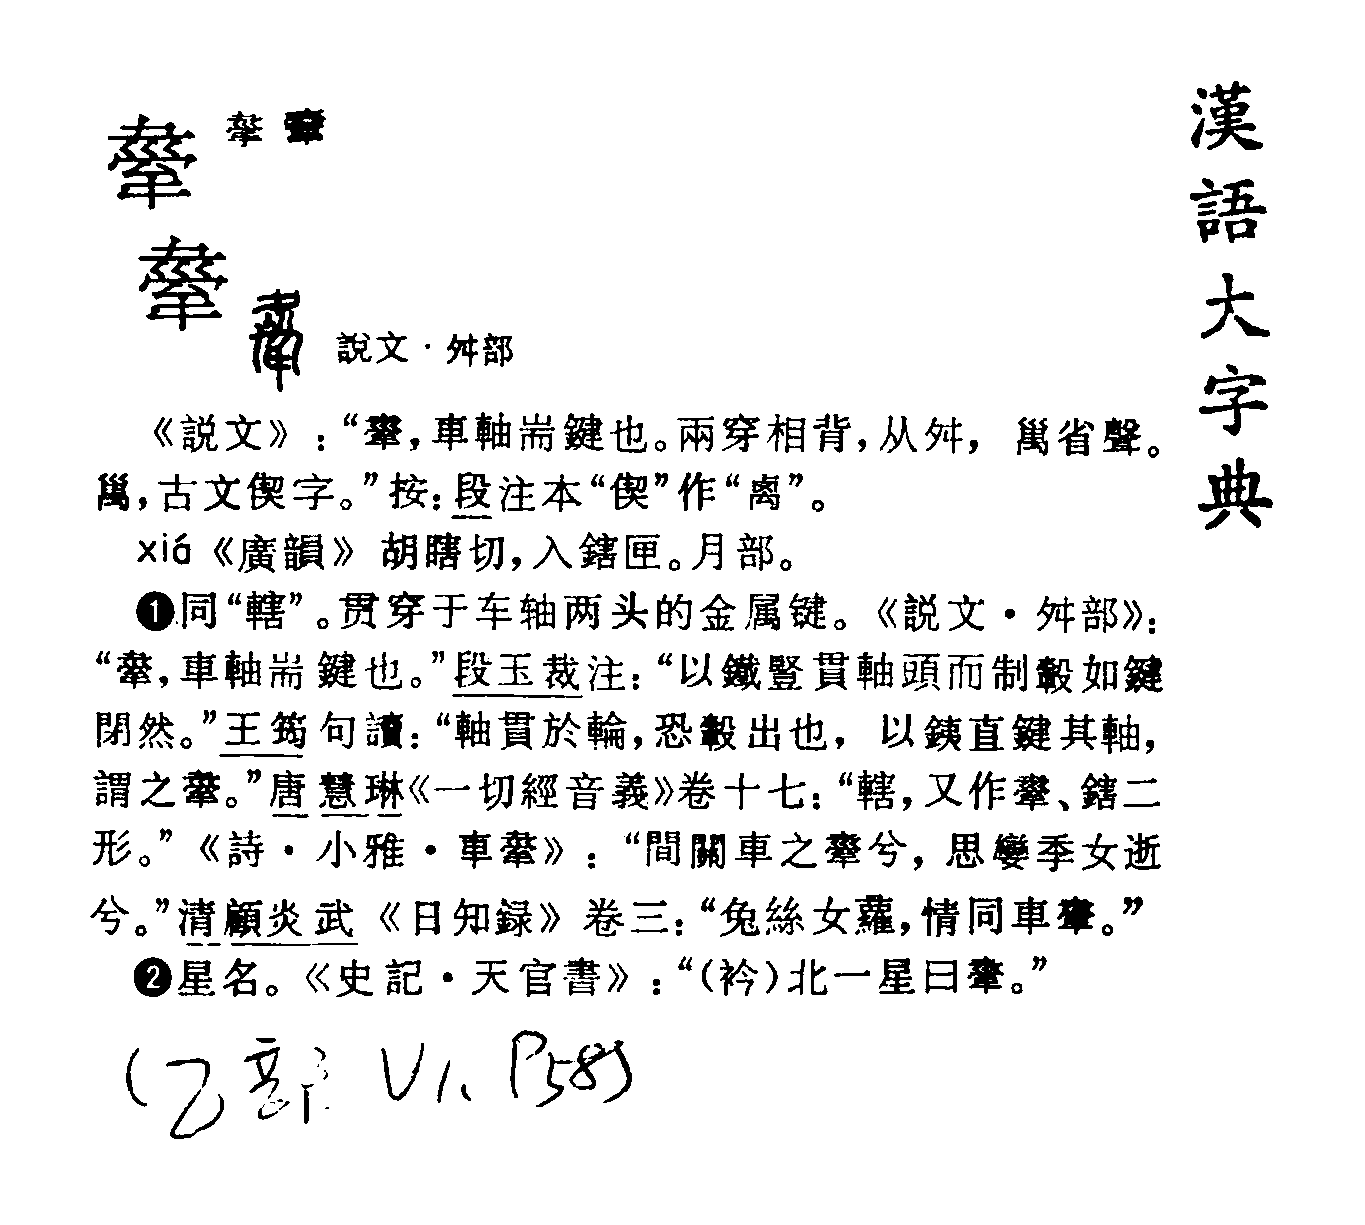 漢語大字典
舝
舝
説文·舛部
《説文》：“舝，車軸耑鍵也。兩穿相背，从舛，𥜿省聲。
𥜿，古文偰字。”按：段注本“偰”作“禼”。
xiá《廣韻》胡瞎切，入鎋匣。月部。
❶同“轄”。贯穿于车轴两头的金属键。《説文·舛部》：
“舝，車軸耑鍵也。”段玉裁注：“以鐵豎貫軸頭而制轂如鍵
閉然。”王筠句讀：“軸貫於輪，恐轂出也，以鐵直鍵其軸，
謂之舝。”唐慧琳《一切經音義》卷十七：“轄，又作舝、鎋二
形。”《詩·小雅·車舝》：“間關車之舝兮，思孌季女逝
兮。”清顧炎武《日知録》卷三：“兔絲女蘿，情同車舝。”
❷星名。《史記·天官書》：“(衿)北一星曰舝。”
(乙部 V1、P58)